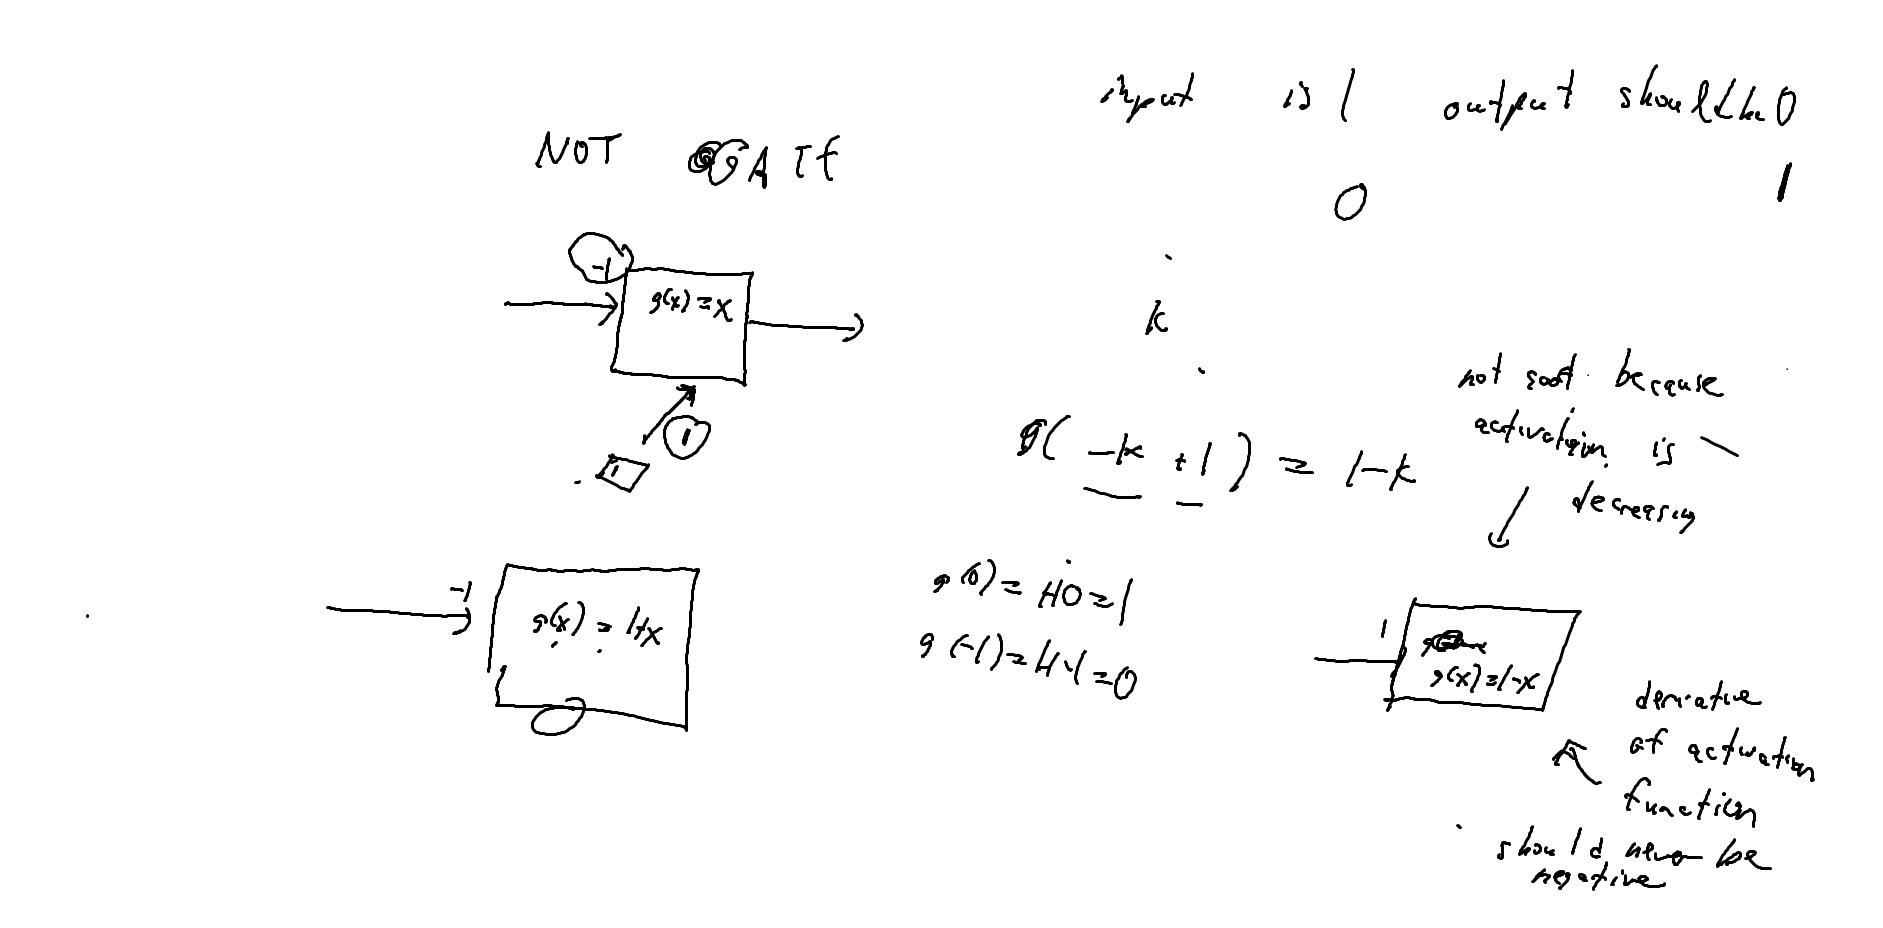 input is 1 output should be 0
NOT GATE
0 1
-1
g(x) = x
k
1
1
not good because
activation is
decreasing
g( -k + 1 ) = 1-k
-1
g(x) = 1+x
g(0) = 1+0 = 1
g(-1) = 1+-1 = 0
1
g(x) = 1-x
derivative
of activation
function
should never be
negative